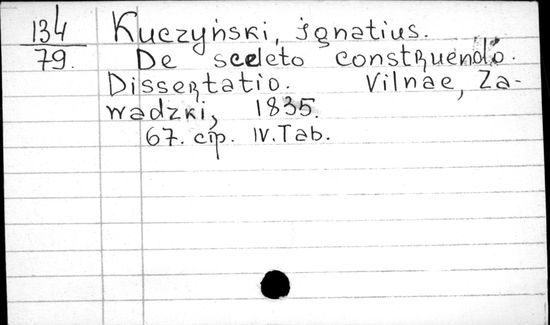 134 Kuczyński, ignatius.
79. De sceleto construendo.
Dissertatio. Vilnae, Za-
wadzki, 1835.
67. cip. IV. Tab.